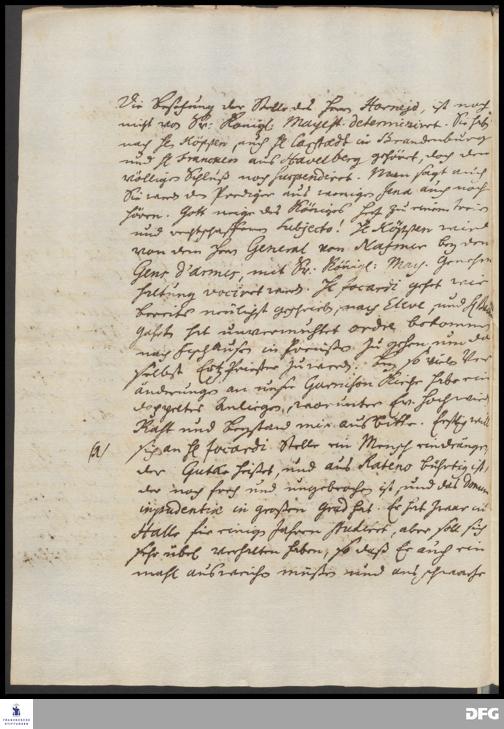 Die Besetzung der Stelle des Herrn Hornejo, ist noch
nicht von Sr: Königl: Mayest. determiniret. Sie hat
nach H. Köppen, auch H. Carstaedt in Brandenburg
und H. Francken aus Havelberg gehöret, doch den
völligen Schluß noch suspendiret. Man sagt auch
Sie werde den Prediger aus Jena auch noch
hören. Gott neige des Königes Hertz zu einem
und rechtschaffenen Subjecto! H. wird
von dem Herrn General von Natzmer bey den
Gens d'armes, mit Sr: Königl: May. Genehm
haltung vociret werden. H. Jocardi gehet wie
bereits neulich geschrieben, nach Cleve, und H.
hat unvermuthet ordre bekommen
nach in Preußen zu gehen, um da
selbst Ertz Priester zu werden. Bey so vielen Ver
änderungen an unser Garnison Kirche habe ein
doppeltes Anliegen, worunter Ew. Hochwürd.
Rath und Beystand mir ausbitte. Erstl. will
(a) sich an H. Jocardi Stelle ein Mensch eindringen,
der Guthe heisset, und aus Rateno bührtig ist,
der noch frech und ungebrochen ist, und das Donum
impudentiae in großem Grad hat. Er hat zwar in
Halle für einigen Jahren studiret, aber soll sich
sehr übel verhalten haben, so daß Er auch ein
mahl ausweichen müssen und aus
FRANCKESCHE STIFTUNGEN
DFG